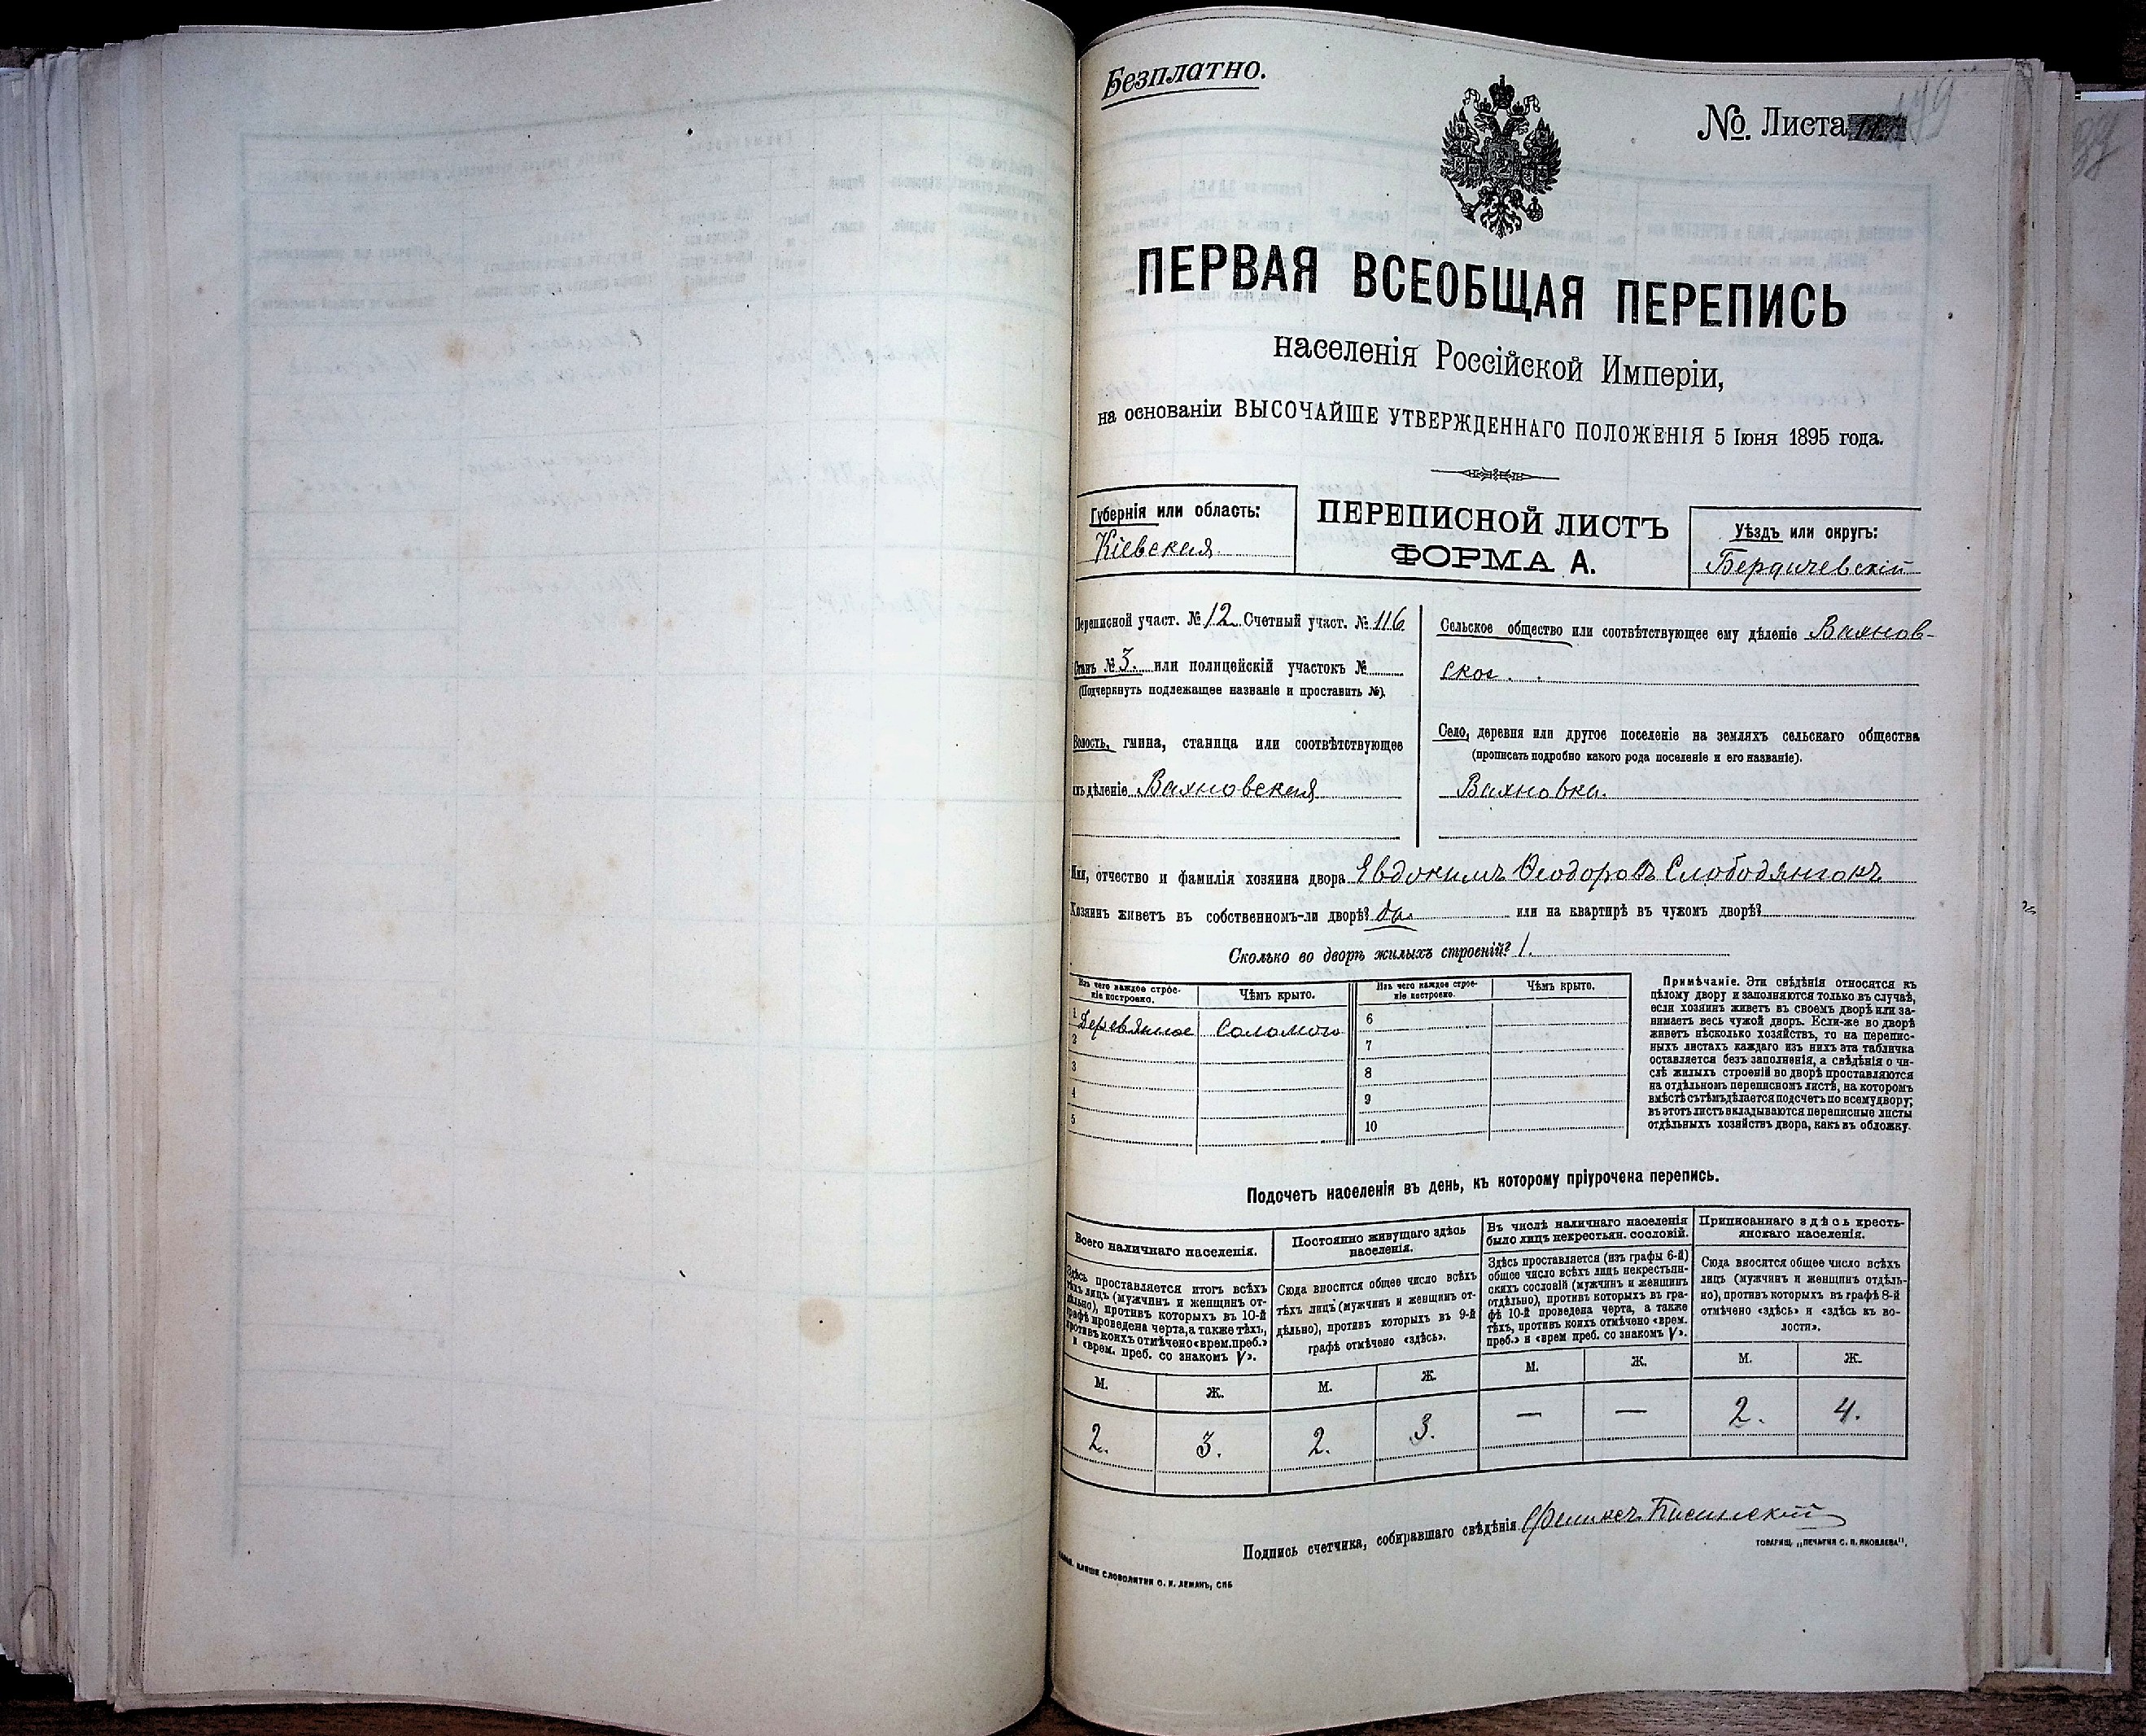 Безплатно.
№ Листа
ПЕРВАЯ ВСЕОБЩАЯ ПЕРЕПИСЬ
населенія Россійской Имперіи,
на основаніи ВЫСОЧАЙШЕ УТВЕРЖДЕННАГО ПОЛОЖЕНІЯ 5 Іюня 1895 года.
Губернія или область:
Кіевская
ПЕРЕПИСНОЙ ЛИСТЪ
ФОРМА А.
Уѣздъ или округъ:
Бердичевскій
Переписной участ. № 12 Счетный участ. № 116
Станъ № 3. или полицейскій участокъ №
(Подчеркнуть подлежащее названіе и проставить №).
Волость, гмина, станица или соотвѣтствующее
имъ дѣленіе Вахновская
Сельское общество или соотвѣтствующее ему дѣленіе Вахнов-
ское.
Село, деревня или другое поселеніе на земляхъ сельскаго общества
(прописать подробно какого рода поселеніе и его названіе).
Вахновка.
Имя, отчество и фамилія хозяина двора Евдокимъ Ѳеодоровъ Слободянюкъ
Хозяинъ живетъ въ собственномъ-ли дворѣ? да. или на квартирѣ въ чужомъ дворѣ?
Сколько во дворѣ жилыхъ строеній? 1.
Изъ чего каждое строе-
ніе построено.
Чѣмъ крыто.
Изъ чего каждое строе-
ніе построено.
Чѣмъ крыто.
1 Деревянное Соломою 6
2 7
3 8
4 9
5 10
Примѣчаніе. Эти свѣдѣнія относятся къ
цѣлому двору и заполняются только въ случаѣ,
если хозяинъ живетъ въ своемъ дворѣ или за-
нимаетъ весь чужой дворъ. Если-же во дворѣ
живетъ нѣсколько хозяйствъ, то на перепис-
ныхъ листахъ каждаго изъ нихъ эта табличка
оставляется безъ заполненія, а свѣдѣнія о чи-
слѣ жилыхъ строеній во дворѣ проставляются
на отдѣльномъ переписномъ листѣ, на которомъ
вмѣстѣ съ тѣмъ дѣлается подсчетъ по всему двору;
въ этотъ листъ вкладываются переписные листы
отдѣльныхъ хозяйствъ двора, какъ въ обложку.
Подсчетъ населенія въ день, къ которому пріурочена перепись.
Всего наличнаго населенія.
Здѣсь проставляется итогъ всѣхъ
тѣхъ лицъ (мужчинъ и женщинъ от-
дѣльно), противъ которыхъ въ 10-й
графѣ проведена черта, а также тѣхъ,
противъ коихъ отмѣчено «врем. преб.»
и «врем. преб. со знакомъ V».
Постоянно живущаго здѣсь
населенія.
Сюда вносится общее число всѣхъ
тѣхъ лицъ (мужчинъ и женщинъ от-
дѣльно), противъ которыхъ въ 9-й
графѣ отмѣчено «здѣсь».
Въ числѣ наличнаго населенія
было лицъ некрестьян. сословій.
Здѣсь проставляется (изъ графы 6-й)
общее число всѣхъ лицъ некрестьян-
скихъ сословій (мужчинъ и женщинъ
отдѣльно), противъ которыхъ въ гра-
фѣ 10-й проведена черта, а также
тѣхъ, противъ коихъ отмѣчено «врем.
преб.» и «врем. преб. со знакомъ V».
Приписаннаго здѣсь кресть-
янскаго населенія.
Сюда вносится общее число всѣхъ
лицъ (мужчинъ и женщинъ отдѣль-
но), противъ которыхъ въ графѣ 8-й
отмѣчено «здѣсь» и «здѣсь къ во-
лости».
М. Ж. М. Ж. М. Ж. М. Ж.
2. 3. 2. 3. — — 2. 4.
Подпись счетчика, собиравшаго свѣдѣнія
ТОВАРИЩ. „ПЕЧАТНЯ С. П. ЯКОВЛЕВА".
СЛОВОЛИТНИ О. И. ЛЕМАНЪ, СПБ